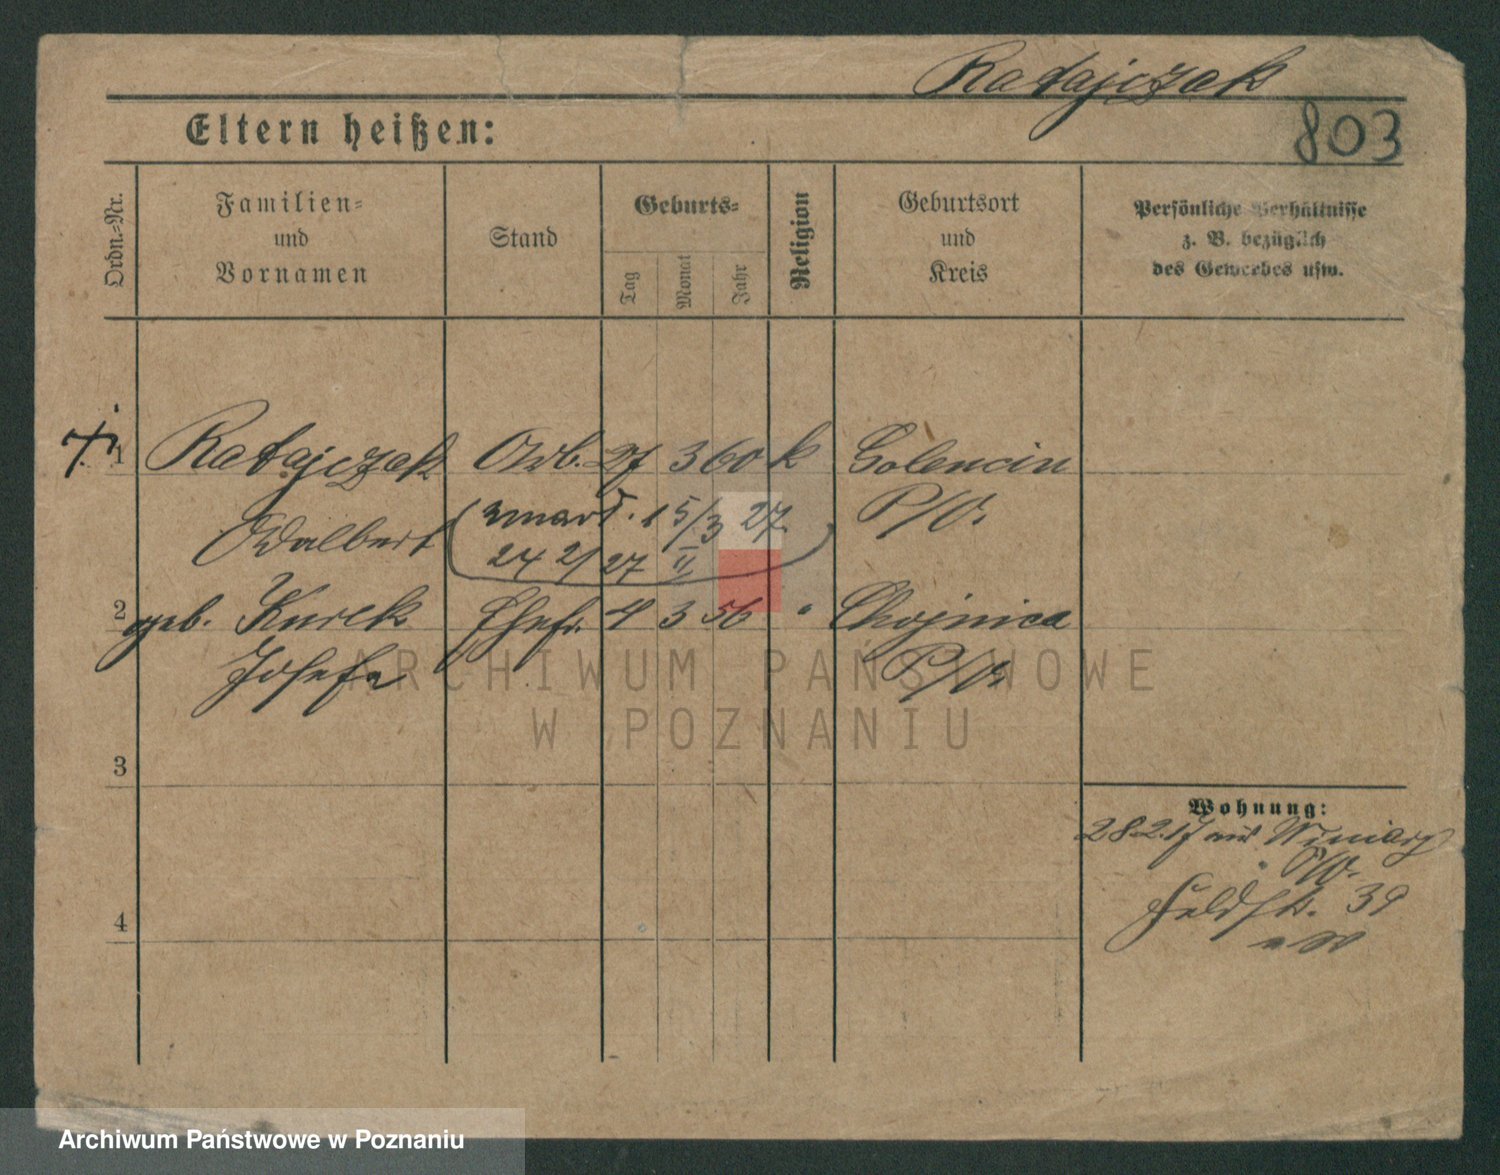 Ratajczak
803
Eltern heißen:
Ordn.-Nr.
Familien-
und
Vornamen
Stand
Geburts-
Tag
Monat
Jahr
Religion
Geburtsort
und
Kreis
Persönliche Verhältnisse
z. B. bezüglich
des Gewerbes usw.
1 Ratajczak Arb. 27 3 60 k Golencin
Adalbert P/O.
zmarł. 15/3 27.
24 2/27 II
2 geb. Kurek Ehefr. 4 3 56 " Chojnica
Josefa P/O.
3
4
Wohnung:
28 2. 17 aus Winiary
P/O.
Feldstr. 39
ARCHIWUM PAŃSTWOWE
W POZNANIU
Archiwum Państwowe w Poznaniu